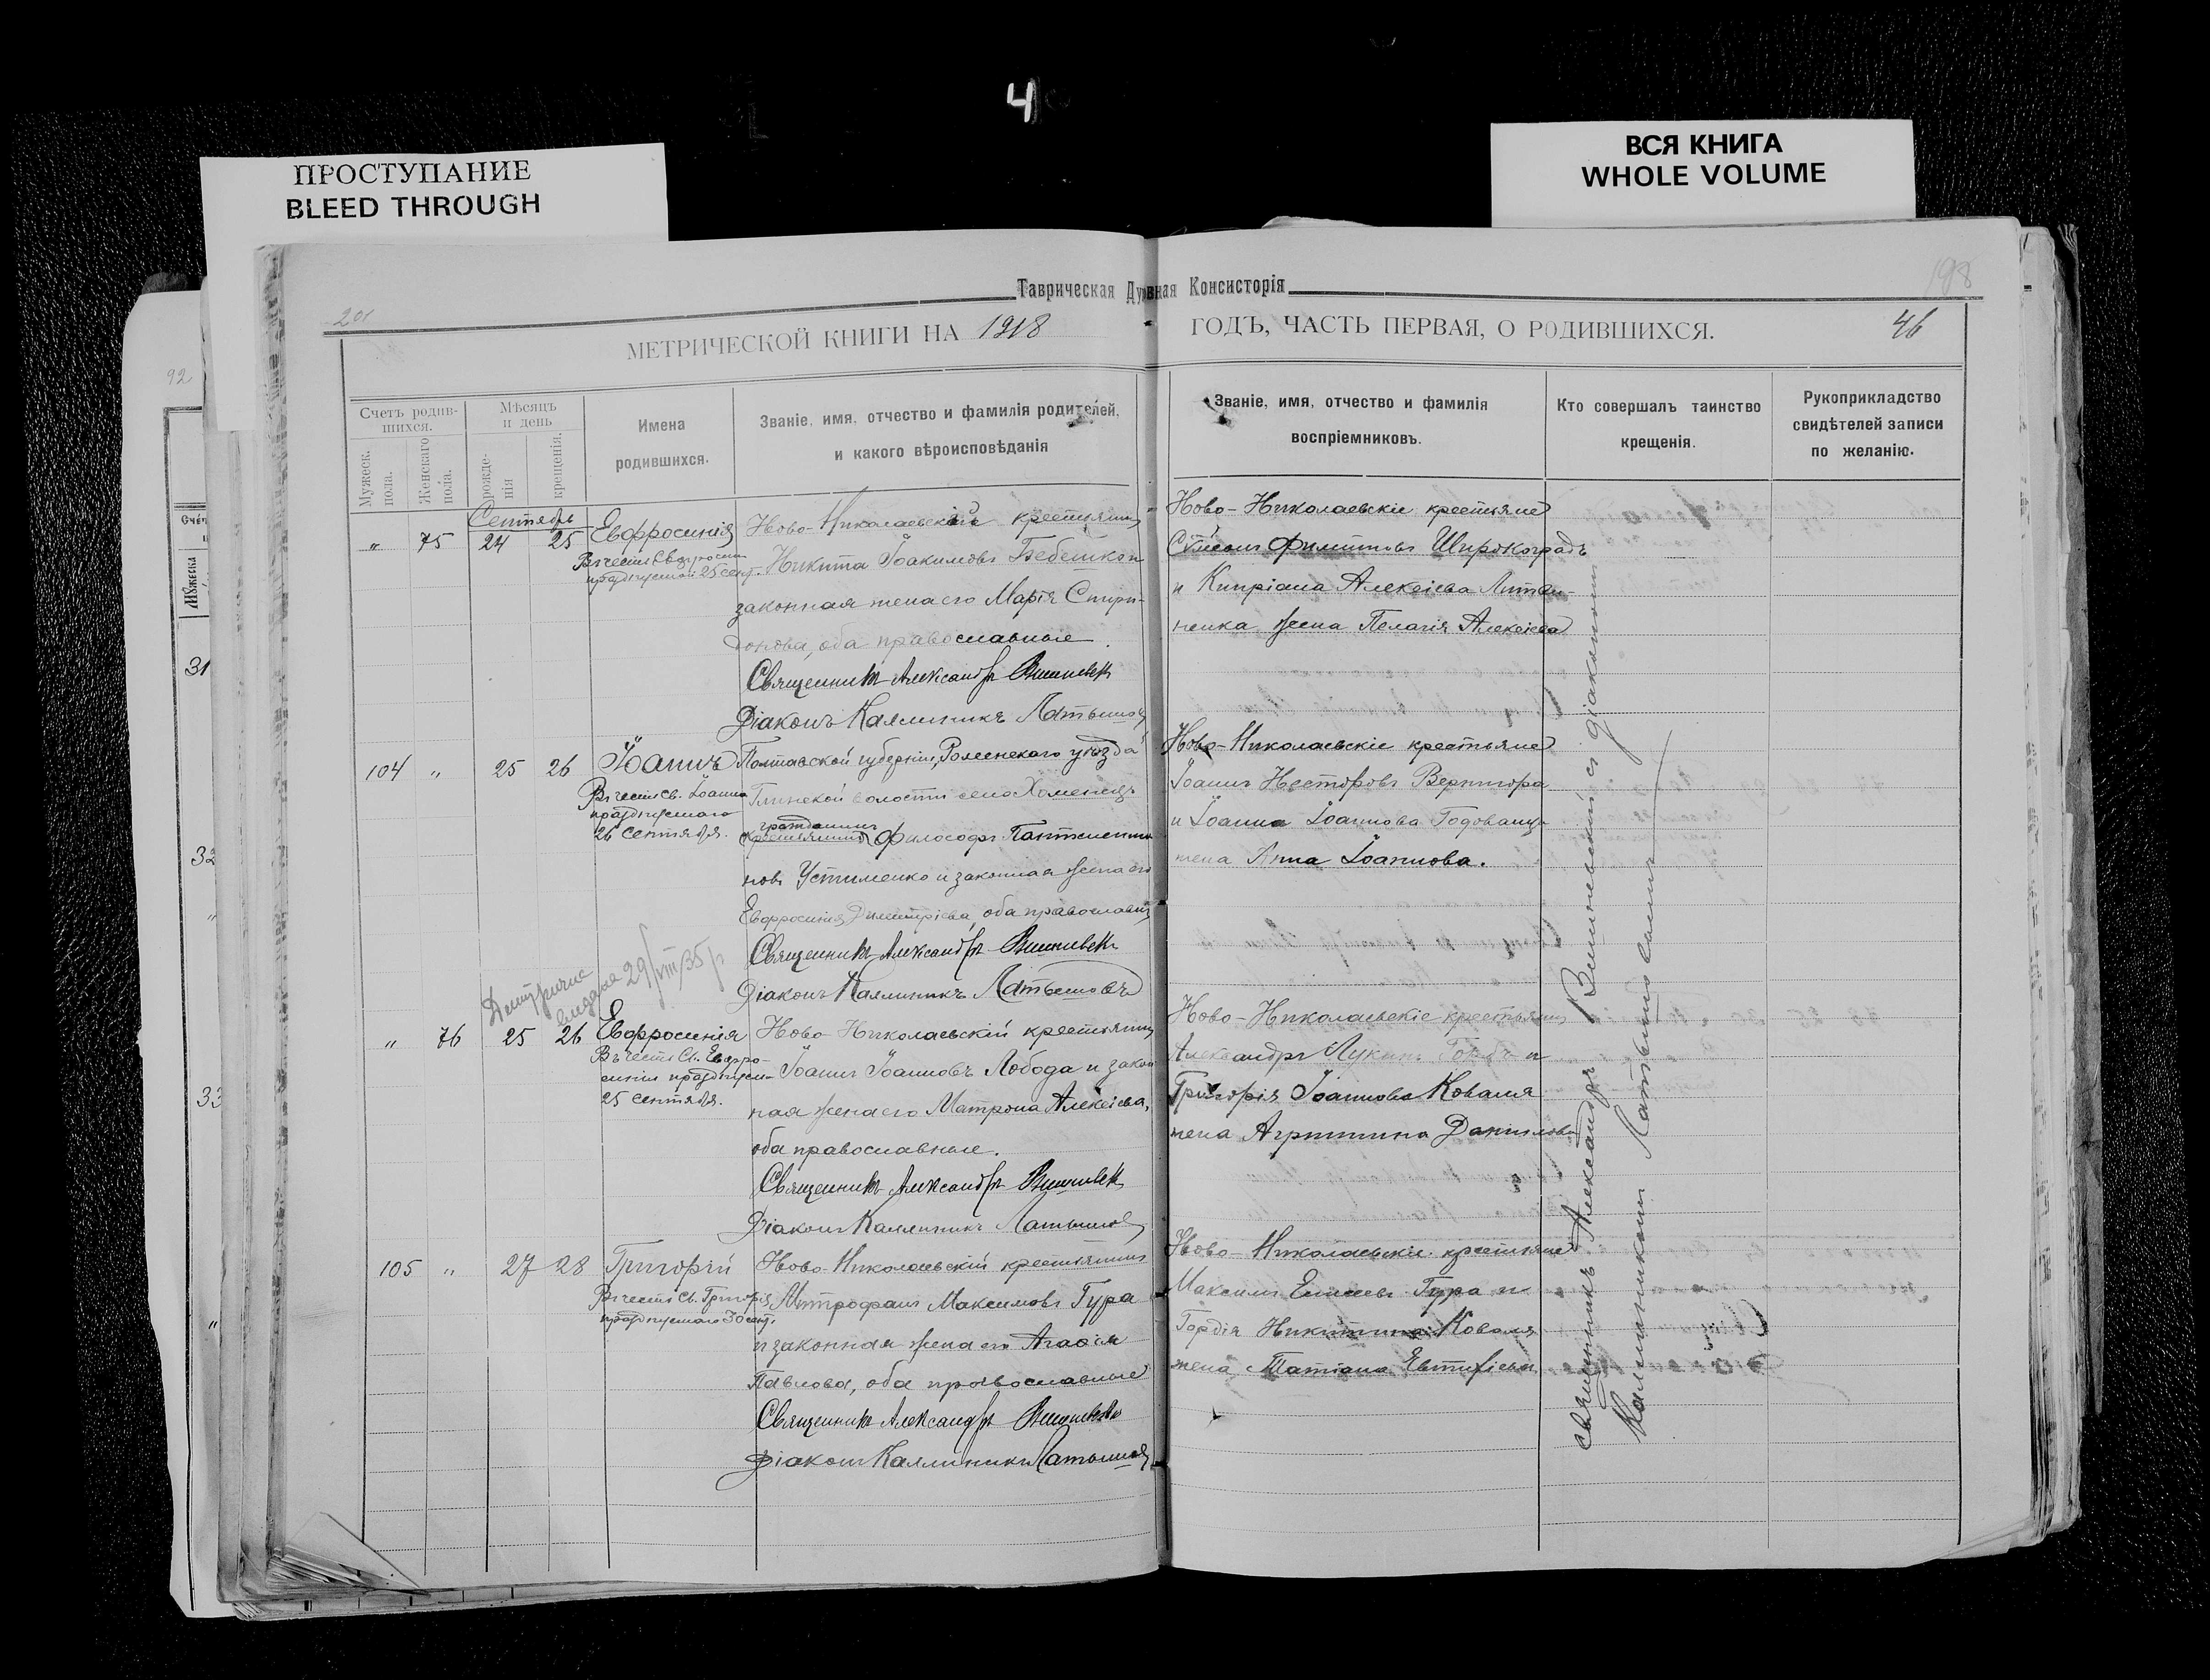 4
ПРОСТУПАНИЕ
BLEED THROUGH
ВСЯ КНИГА
WHOLE VOLUME
Таврическая Духовная Консисторія
201
198
МЕТРИЧЕСКОЙ КНИГИ НА 1918 ГОДЪ, ЧАСТЬ ПЕРВАЯ, О РОДИВШИХСЯ.
46
92
Счетъ родив-
шихся.
Мужеск.
пола.
Женскаго
пола.
Мѣсяцъ
и день
рожде-
нія
крещенія.
Имена
родившихся.
Званіе, имя, отчество и фамилія родителей,
и какого вѣроисповѣданія
Званіе, имя, отчество и фамилія
воспріемниковъ.
Кто совершалъ таинство
крещенія.
Рукоприкладство
свидѣтелей записи
по желанію.
31
32
33
Сентябрь
" 75 24 25 Евфросинія
празднуемой 25 сент.
Ново-Николаевскій крестьянинъ
Никита Іоакимовъ
законная жена его Марія Спири-
донова, оба православные
Священникъ Александръ
Діаконъ Каллиникъ Латышовъ
Ново-Николаевскіе крестьяне
Филиповъ Широкоградъ
и Кипріана Алексіева
жена Пелагія Алексіева
104 " 25 26 Іоаннъ
Въ честь св. Іоанна
празднуемаго
26 сентября.
Полтавской губерніи, Роменскаго уѣзда
Глинской волости села Хоменецъ
гражданинъ
крестьянинъ Философъ Пантелеимо-
новъ Устименко и законная жена его
Евфросинія Димитріева, оба православные
Священникъ Александръ
Діаконъ Каллиникъ Латышовъ
Ново-Николаевскіе крестьяне
Іоаннъ Несторовъ Вернигора
и Іоанна Іоаннова
жена Анна Іоаннова.
выдана 29/VIII 35 р
" 76 25 26 Евфросинія
Въ честь св. Евфро-
синіи празднуем-
25 сентября.
Ново-Николаевскій крестьянинъ
Іоаннъ Іоанновъ Лобода и закон
ная жена его Матрона Алексіева,
оба православные.
Священникъ Александръ
Діаконъ Каллиникъ Латышовъ
Ново-Николаевскіе крестьянинъ
Александръ Лукинъ и
Григорія Іоаннова Коваля
жена Агриппина Данилова
105 " 27 28 Григорій
Въ честь св. Григорія
празднуемаго 30 сент.
Ново-Николаевскій крестьянинъ
Митрофанъ Максимовъ Гура
и законная жена его Агафія
Павлова, оба православные
Священникъ Александръ
Діаконъ Каллиникъ Латышовъ
Ново-Николаевскіе крестьяне
Максимъ Гура и
Гордія Никитина Коваля
жена Татіана Евтихіева
священникъ Александръ Вишневскій съ діакономъ
Каллиникомъ Латышовымъ